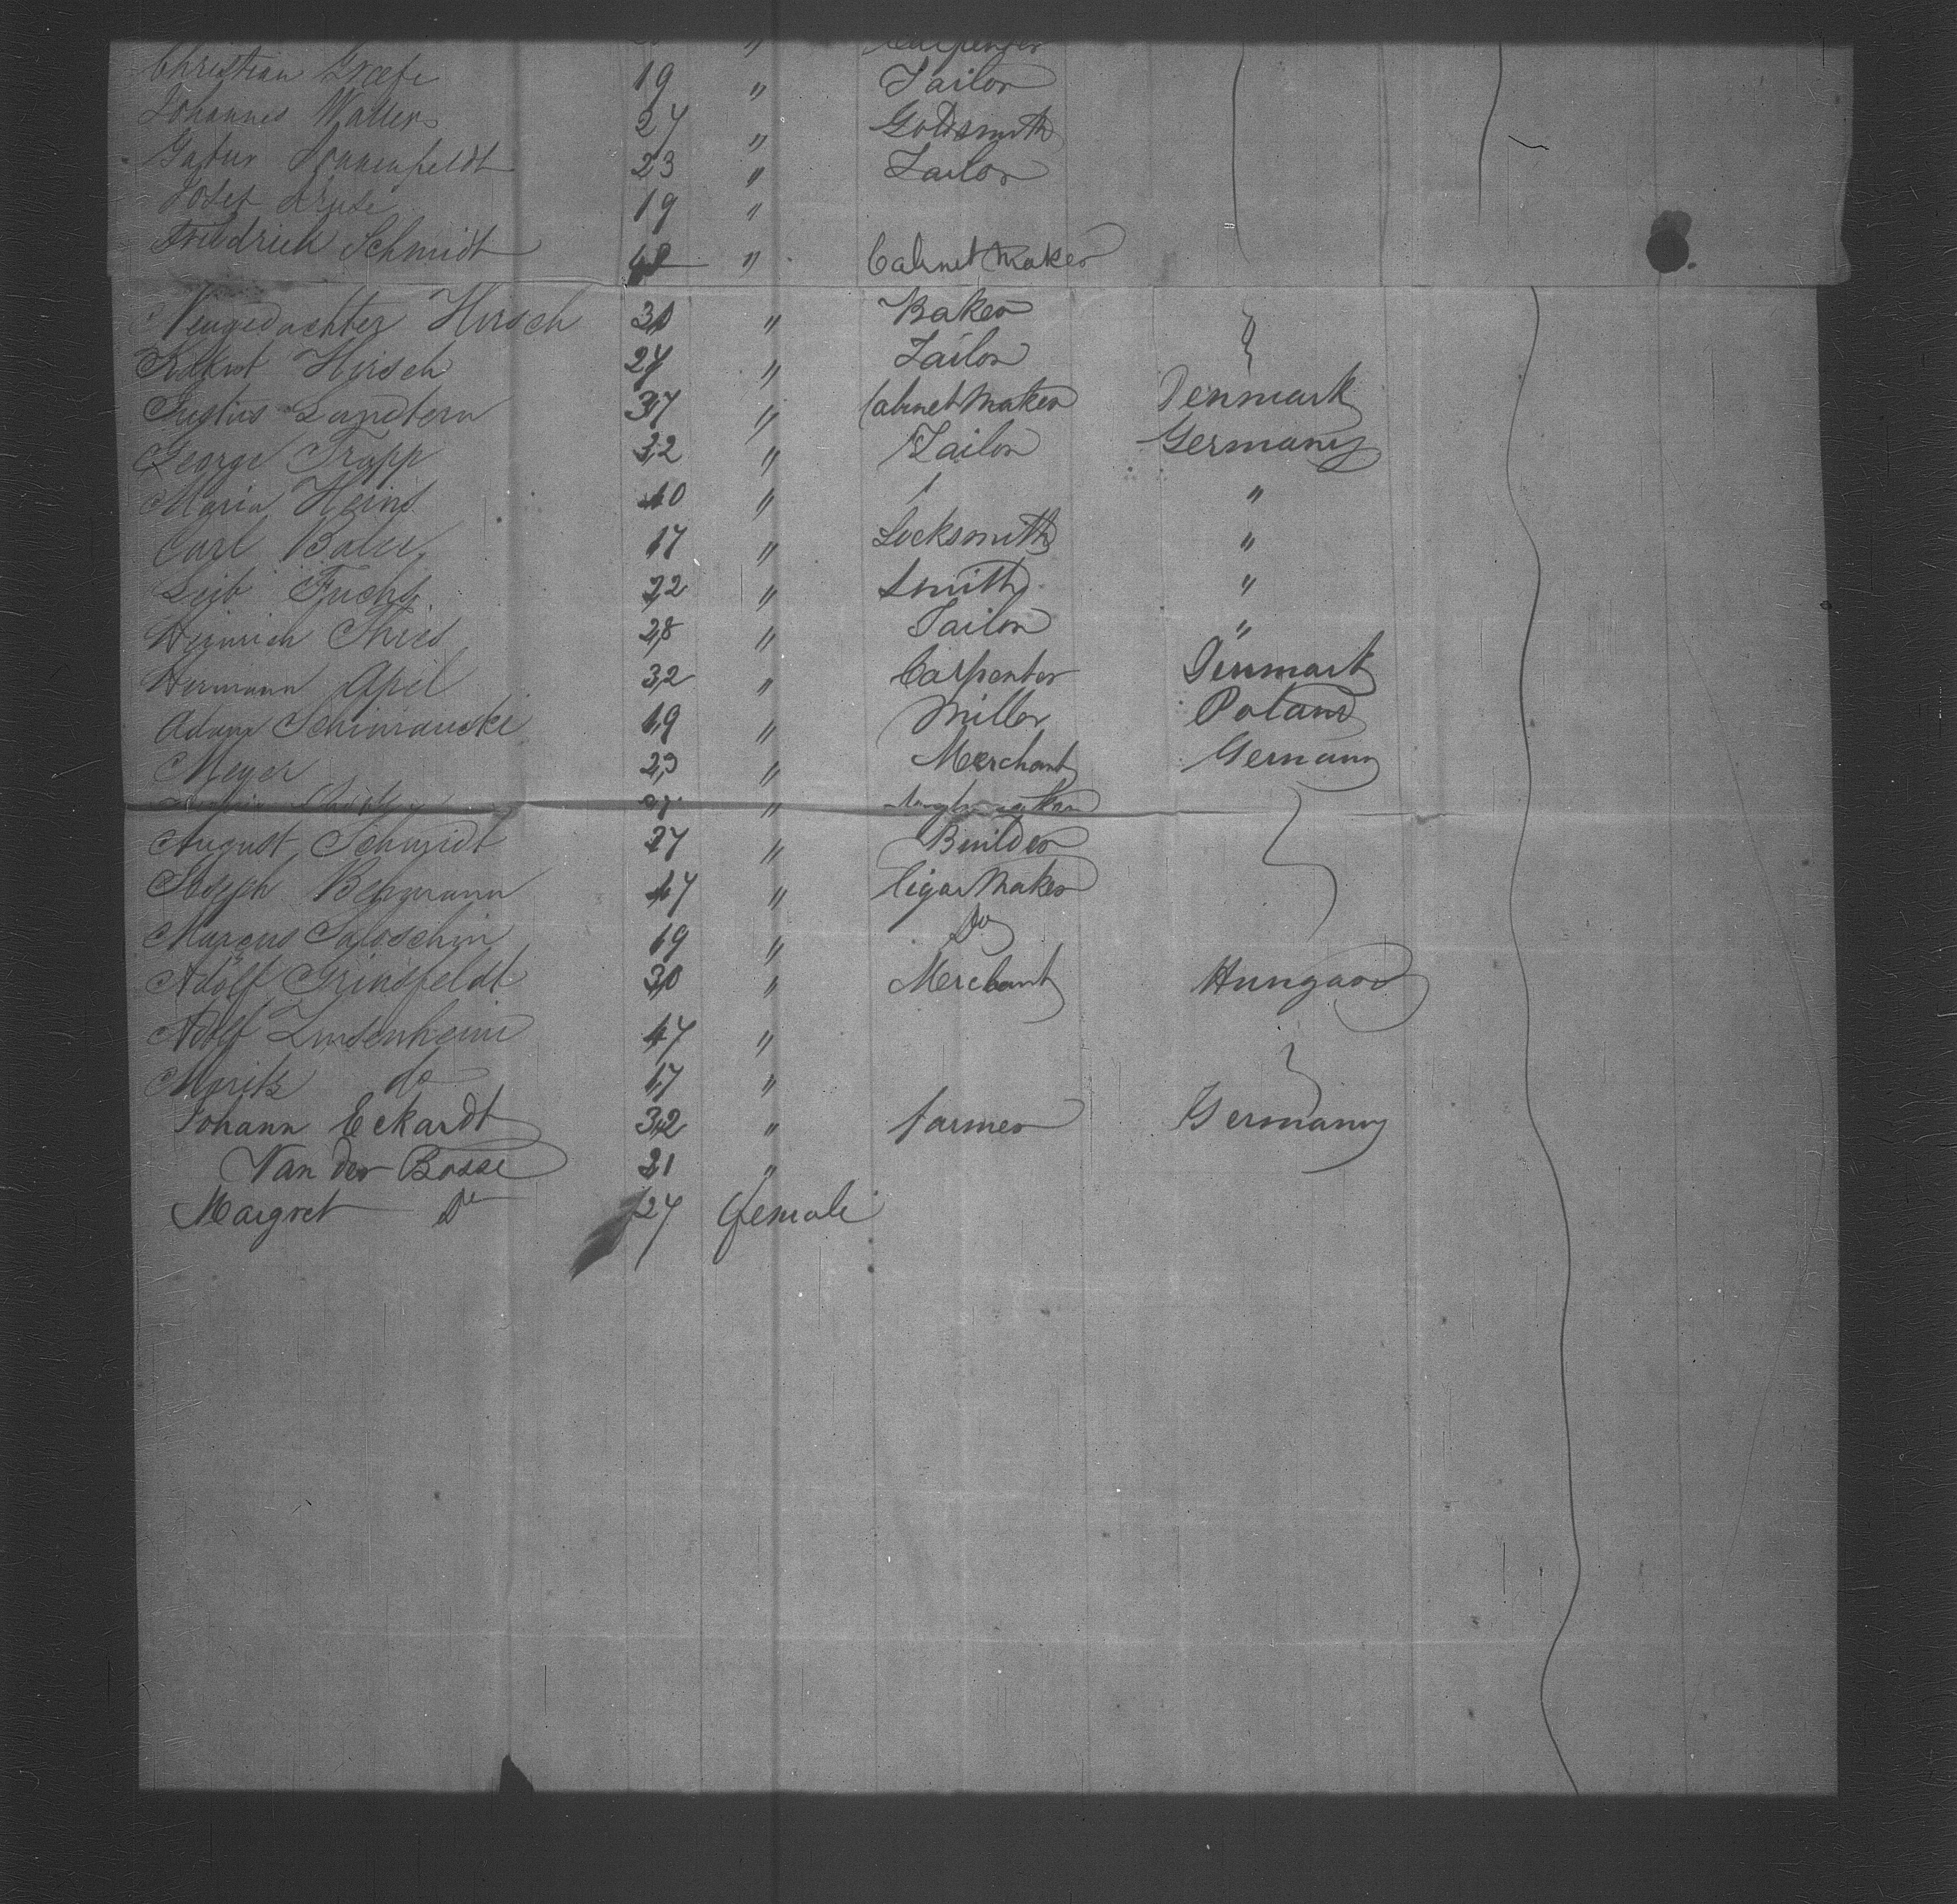 Carpenter
Christian Graefe 19 " Tailor
Johannes Walters 27 " Goldsmith
Sonnenfeldt 23 " Tailor
Josef Kruse 19 "
Friedrich Schmidt 48 " Cabinet Maker
Neugedachter Hirsch 30 " Baker
Hirsch 24 " Tailor
Justus 37 " Cabinet Maker Denmark
George Trapp 32 " Tailor Germany
Maria Heins 40 " "
Carl 17 " Locksmith "
Leib Fuchs 22 " Smith "
Heinrich Thies 28 " Tailor "
Hermann Apel 32 " Carpenter Denmark
Adam Schimanski 19 " Miller Poland
Meyer 23 " Merchant Germany
"
August Schmidt 27 " Builder
Joseph Bergmann 47 " Cigar Maker
Marcus Saloschin 19 " Do
Adolf Grinsfeldt 30 " Merchant Hungary
Adolf Lindenheim 47 "
Moritz do 17 "
Johann Eckardt 32 " farmer Germany
Van der Bosse 21 "
Margret Do 27 female